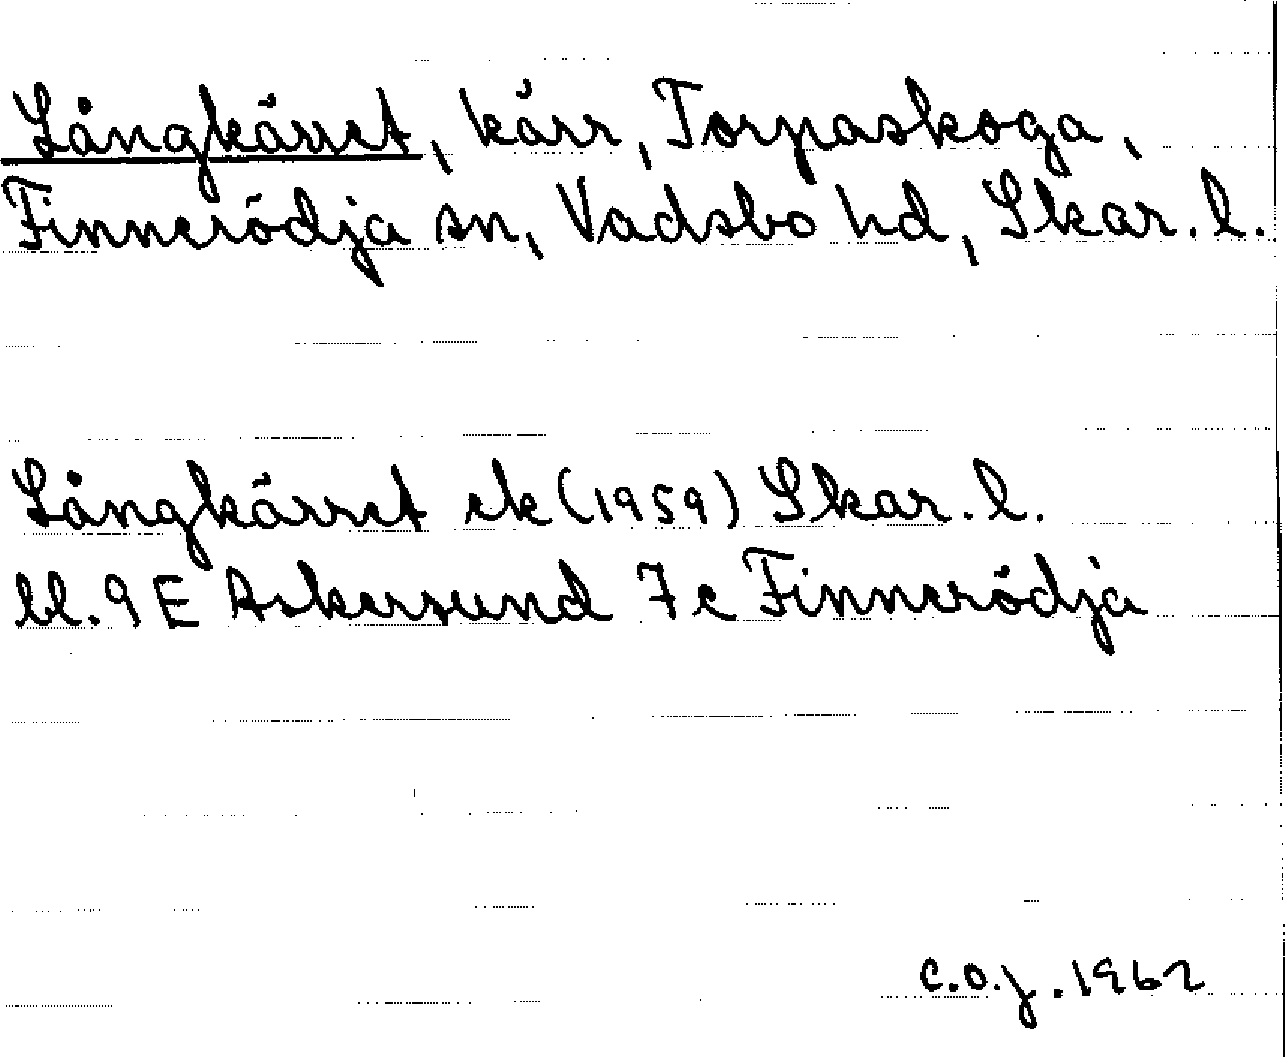 Långkärret, kärr, Torpaskoga,
Finnerödja sn, Vadsbo hd, Skar. l.
Långkärret ek (1959) Skar. l.
bl. 9 E Askersund 7 c Finnerödja
C.O.J. 1962